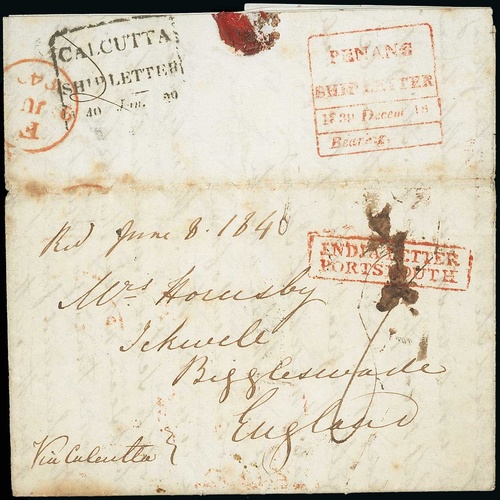 CALCUTTA
SHIP LETTER
40 Jan. 20
PENANG
SHIP LETTER
1839 Decem 18
Bearing.
JU
Recd June 8. 1840
INDIA LETTER
PORTSMOUTH
Mrs Hornsby
Ickwell
Biggleswade
England
Via Calcutta